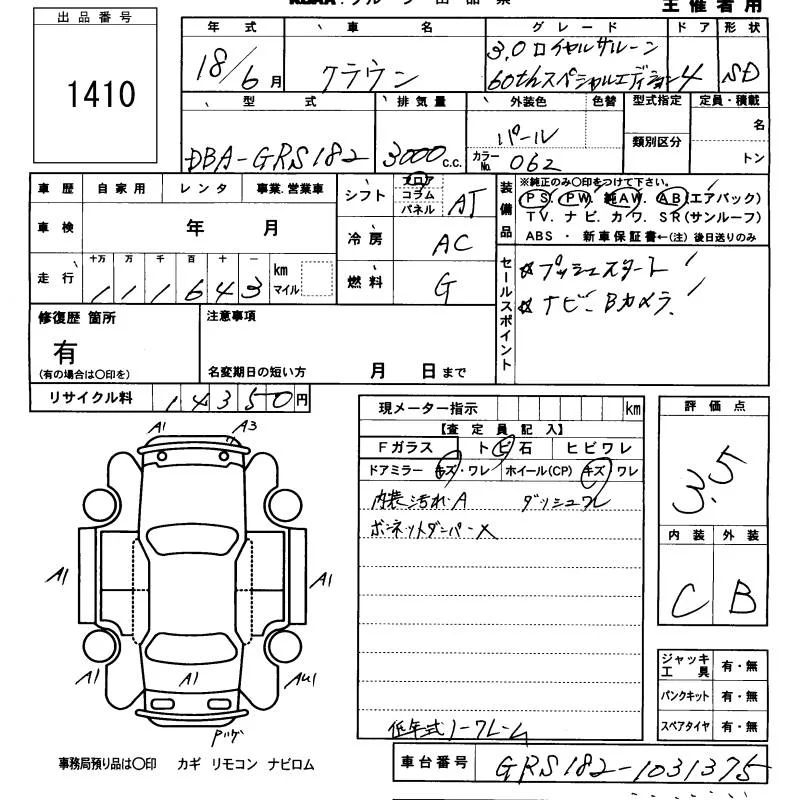 主催者用
出品番号
1410
年式 車名 グレード ドア 形状
18/6月 クラウン 3.0ロイヤルサルーン
60thスペシャルエディション 4 SD
型式 排気量 外装色 色替 型式指定 定員・積載
DBA-GRS182 3000c.c. パール 名
類別区分
カラーNo. 062 トン
車歴 自家用 レンタ 事業.営業車
車検 年 月
走行 十万 万 千 百 十 一
111643 km マイル
シフト フロア コラム パネル AT
冷房 AC
燃料 G
装備品
※純正のみ〇印をつけて下さい。
PS. PW. 純AW. AB(エアバック)
TV. ナビ. カワ. SR(サンルーフ)
ABS ・ 新車保証書←(注)後日送りのみ
セールスポイント
☆プッシュスタート
☆ナビ、Bカメラ
修復歴 箇所
有
(有の場合は〇印を)
注意事項
名変期日の短い方 月 日まで
リサイクル料 14350円
現メーター指示 km
【査定員記入】
Fガラス トビ石 ヒビワレ
ドアミラー キズ・ワレ ホイール(CP) キズ ワレ
内装汚れA ダッシュワレ
ボンネットダンパーX
低年式ノークレーム
評価点
3.5
内装 外装
C B
ジャッキ工具 有・無
パンクキット 有・無
スペアタイヤ 有・無
A1 A3
A1 A1
A1 A1 AU1
事務局預り品は〇印 カギ リモコン ナビロム
車台番号 GRS182-1031375